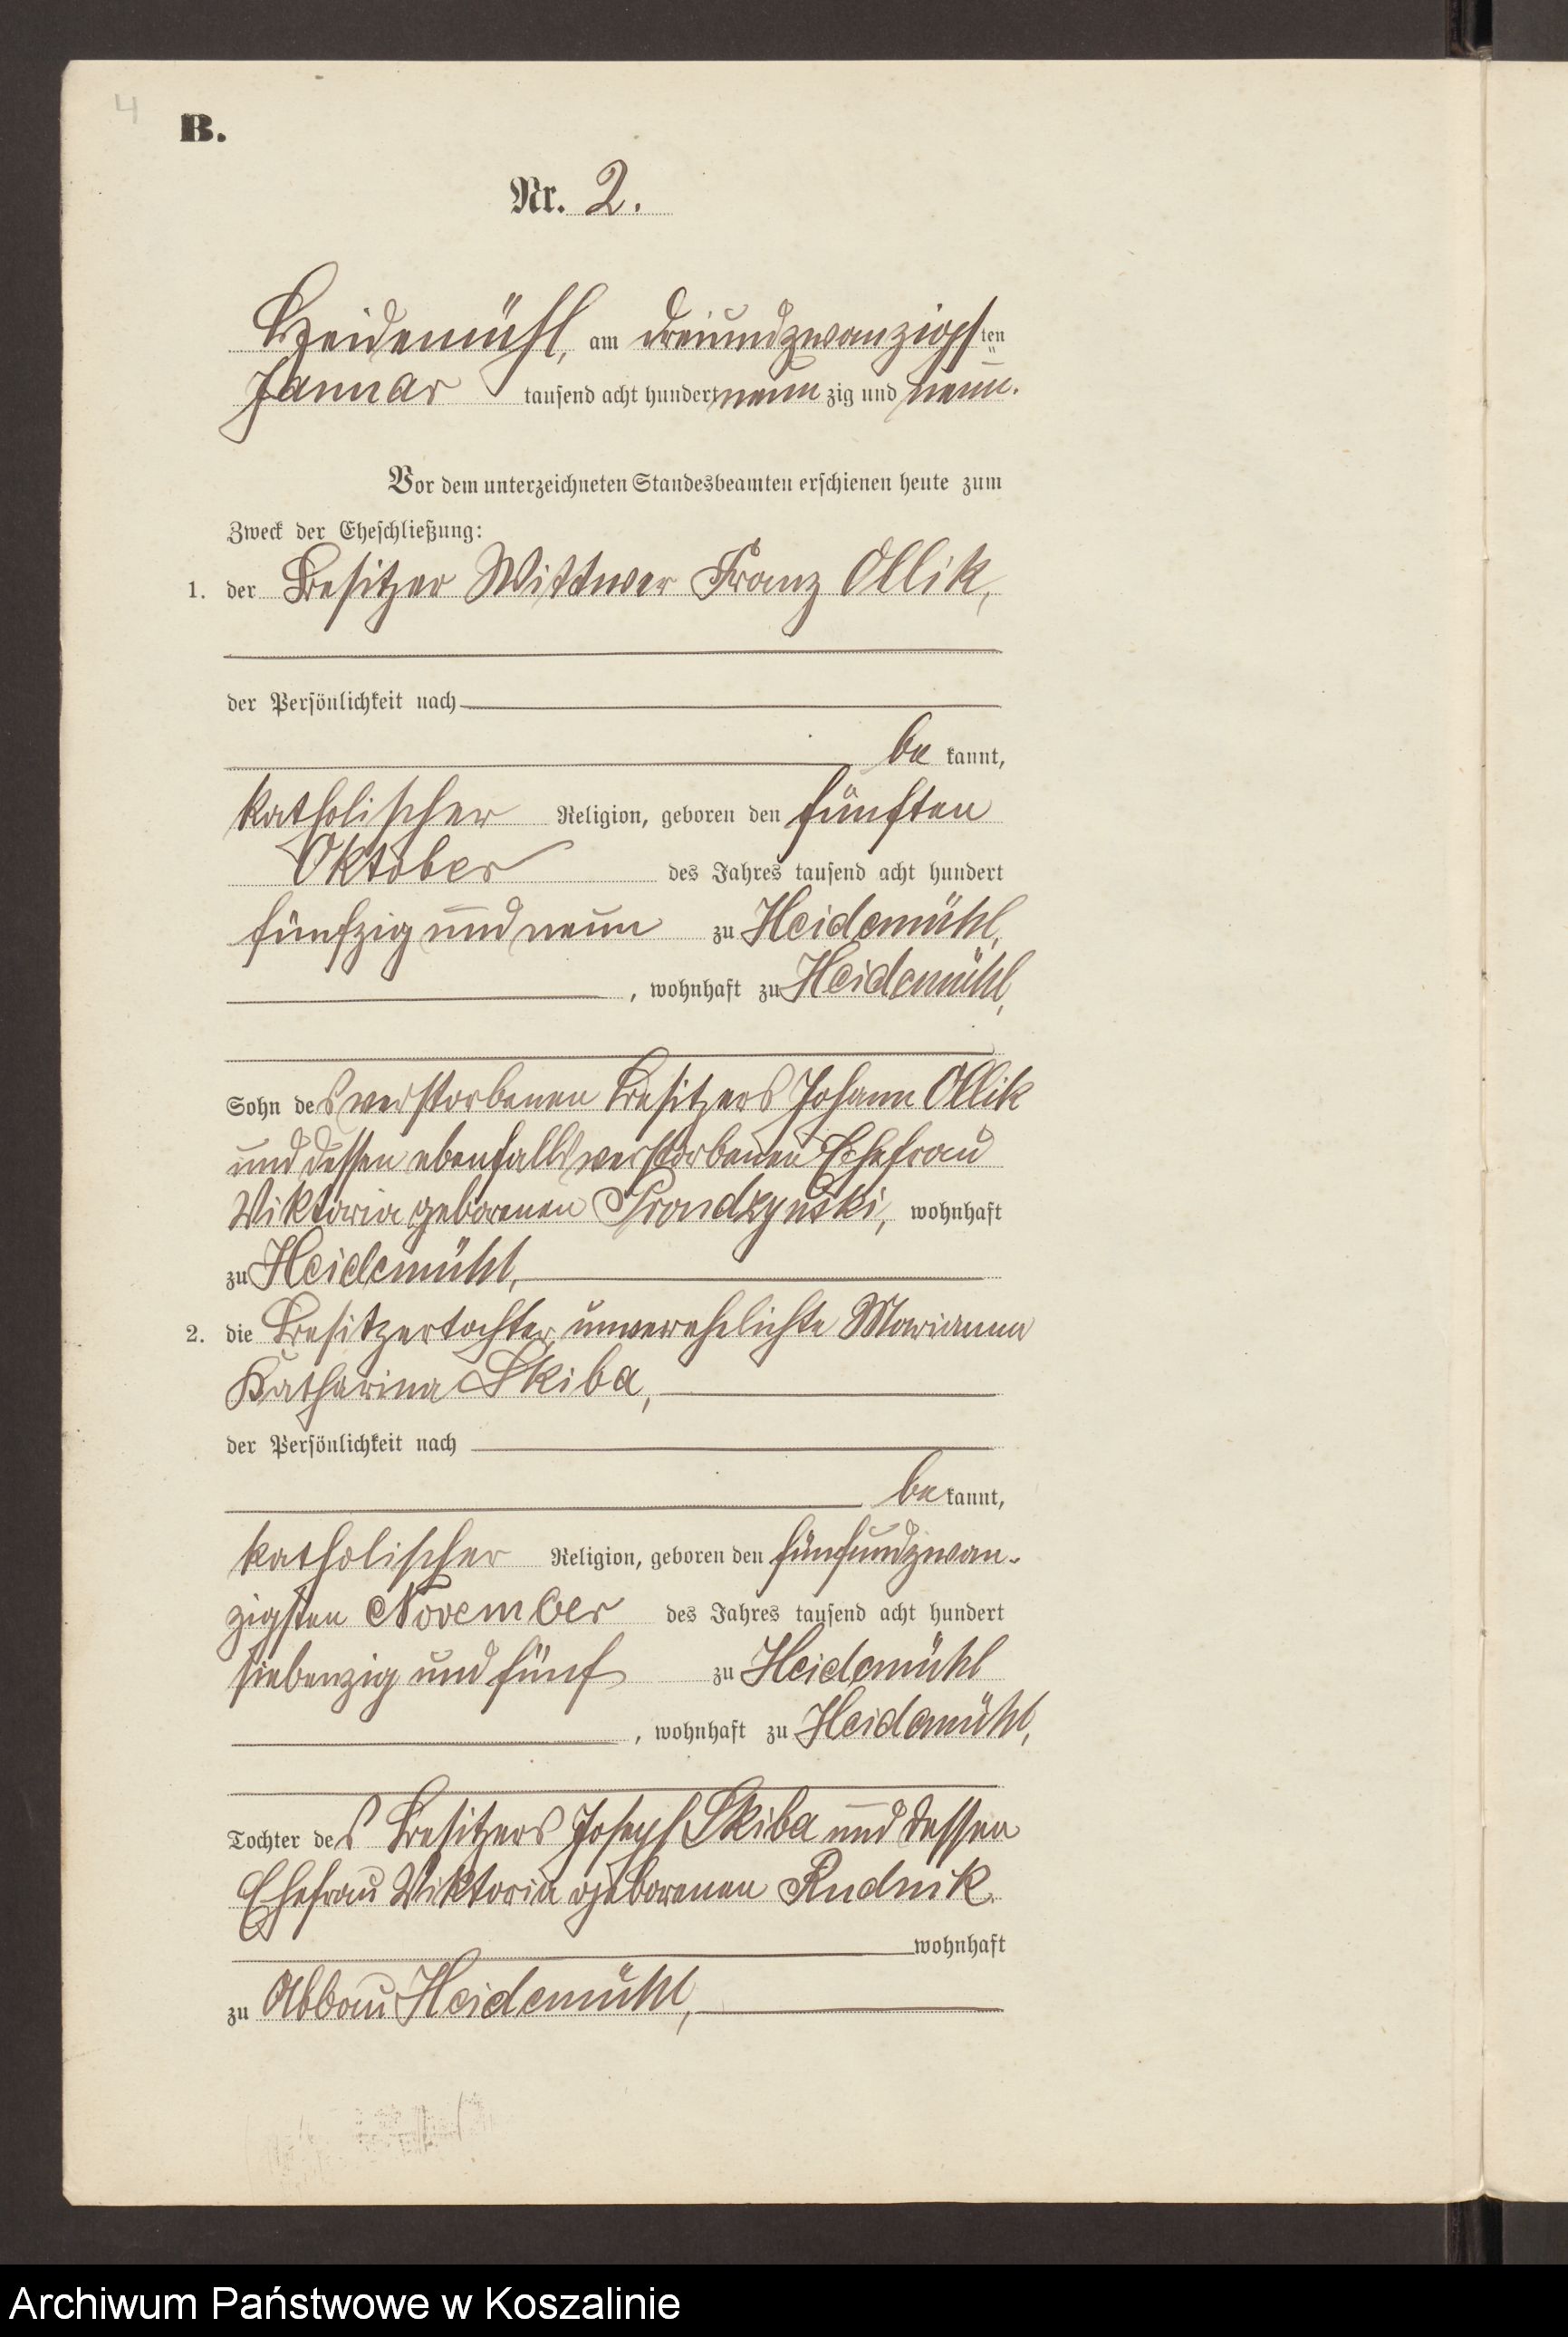 4
B.
Nr. 2.
Heidemühl, am dreiundzwanzigsten
Januar tausend acht hundert neun zig und neun.
Vor dem unterzeichneten Standesbeamten erschienen heute zum
Zweck der Eheschließung:
1. der Besitzer Wittwer Franz Ollik,
der Persönlichkeit nach
be kannt,
katholischer Religion, geboren den fünften
Oktober des Jahres tausend acht hundert
fünfzig und neun zu Heidemühl,
, wohnhaft zu Heidemühl,
Sohn des verstorbenen Besitzers Johann Ollik
und dessen ebenfalls verstorbenen Ehefrau
Viktoria geborenen Prondzynski, wohnhaft
zu Heidemühl,
2. die Besitzertochter, unverehelichte Marianna
Katharina Skiba,
der Persönlichkeit nach
be kannt,
katholischer Religion, geboren den fünfundzwan-
zigsten November des Jahres tausend acht hundert
siebenzig und fünf zu Heidemühl
, wohnhaft zu Heidemühl,
Tochter des Besitzers Joseph Skiba und dessen
Ehefrau Viktoria geborenen Rudnik.
wohnhaft
zu Abbau Heidemühl,
Archiwum Państwowe w Koszalinie